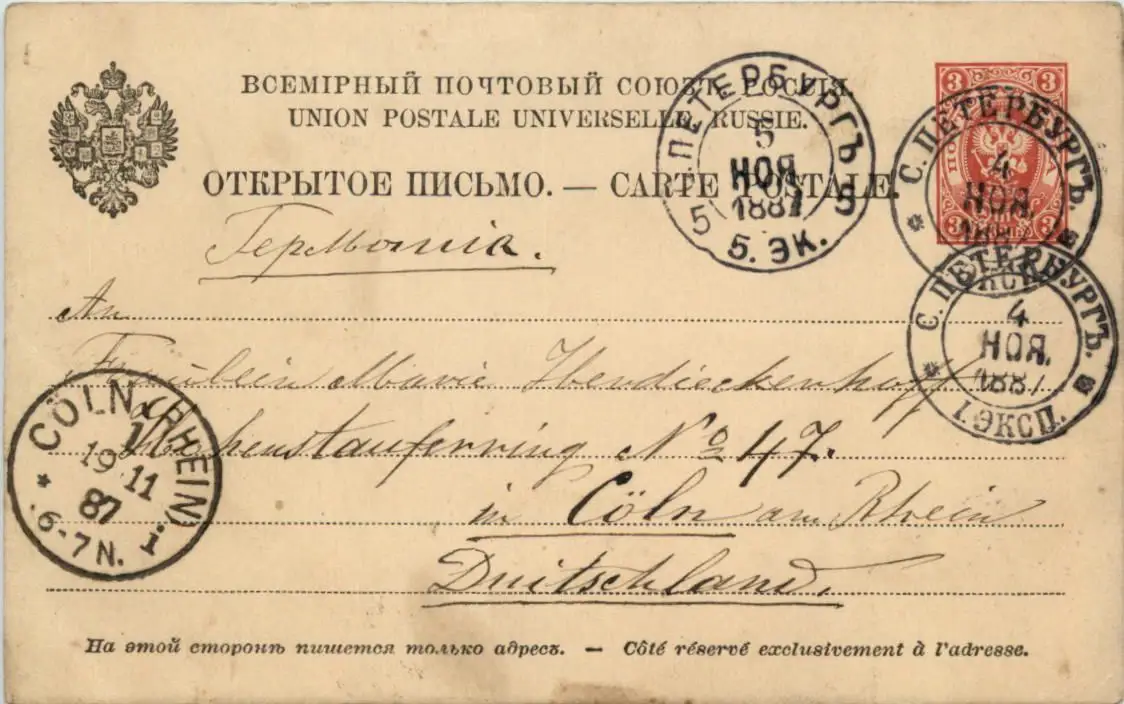 ВСЕМІРНЫЙ ПОЧТОВЫЙ СОЮЗЪ. РОССІЯ.
UNION POSTALE UNIVERSELLE. RUSSIE.
ОТКРЫТОЕ ПИСЬМО. — CARTE POSTALE.
3 3
3 3
С. ПЕТЕРБУРГЪ
5
НОЯ
1887
5 5
5. ЭК.
С. ПЕТЕРБУРГЪ.
4
НОЯ.
С. ПЕТЕРБУРГЪ.
4
НОЯ.
1887
1. ЭКСП.
Германія.
An
Fräulein Marie Hendieckenhoff
Hohenstaufenring No 47.
in Cöln am Rhein
Duitschland.
CÖLN (RHEIN). 1.
1
19 11
87
6-7 N.
На этой сторонѣ пишется только адресъ. — Côté réservé exclusivement à l'adresse.